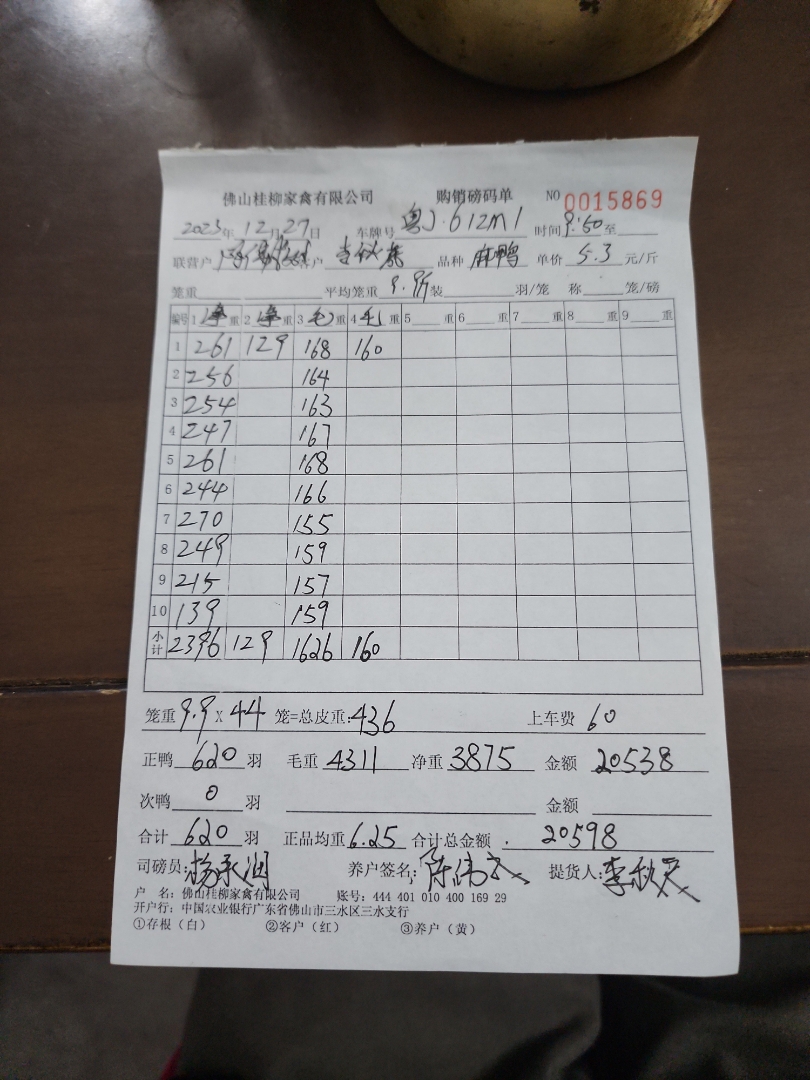 佛山桂柳家禽有限公司 购销磅码单 NO 0015869
2023年12月27日 车牌号 粤J·612M1 时间 9:50 至
联营户 客户 李秋 品种 麻鸭 单价 5.3 元/斤
笼重 平均笼重 9.9斤 装 羽/笼 称 笼/磅
编号 1 净 重 2 净 重 3 毛 重 4 毛 重 5 重 6 重 7 重 8 重 9 重
1 261 129 168 160
2 256 164
3 254 163
4 247 167
5 261 168
6 244 166
7 270 155
8 249 159
9 215 157
10 139 159
小计 2396 129 1626 160
笼重 9.9 X 44 笼=总皮重: 436 上车费 60
正鸭 620 羽 毛重 4311 净重 3875 金额 20538
次鸭 0 羽 金额
合计 620 羽 正品均重 6.25 合计总金额 20598
司磅员: 杨承润 养户签名: 陈伟 提货人: 李秋
户 名: 佛山桂柳家禽有限公司 账号: 444 401 010 400 169 29
开户行: 中国农业银行广东省佛山市三水区三水支行
①存根（白） ②客户（红） ③养户（黄）